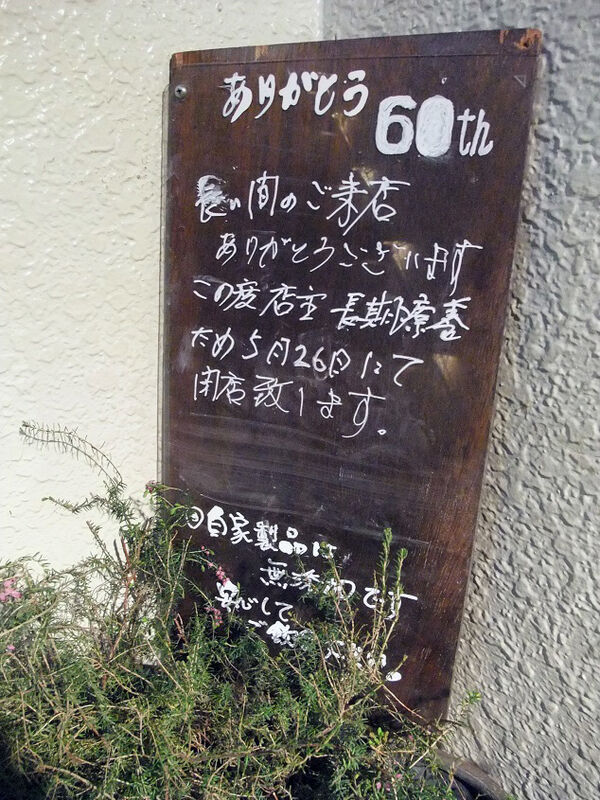 ありがとう 60th
長い間のご来店
ありがとうございます
この度店主 長期療養
ため5月26日にて
閉店致します。
自家製品は
無添加です
安心して
ご飲